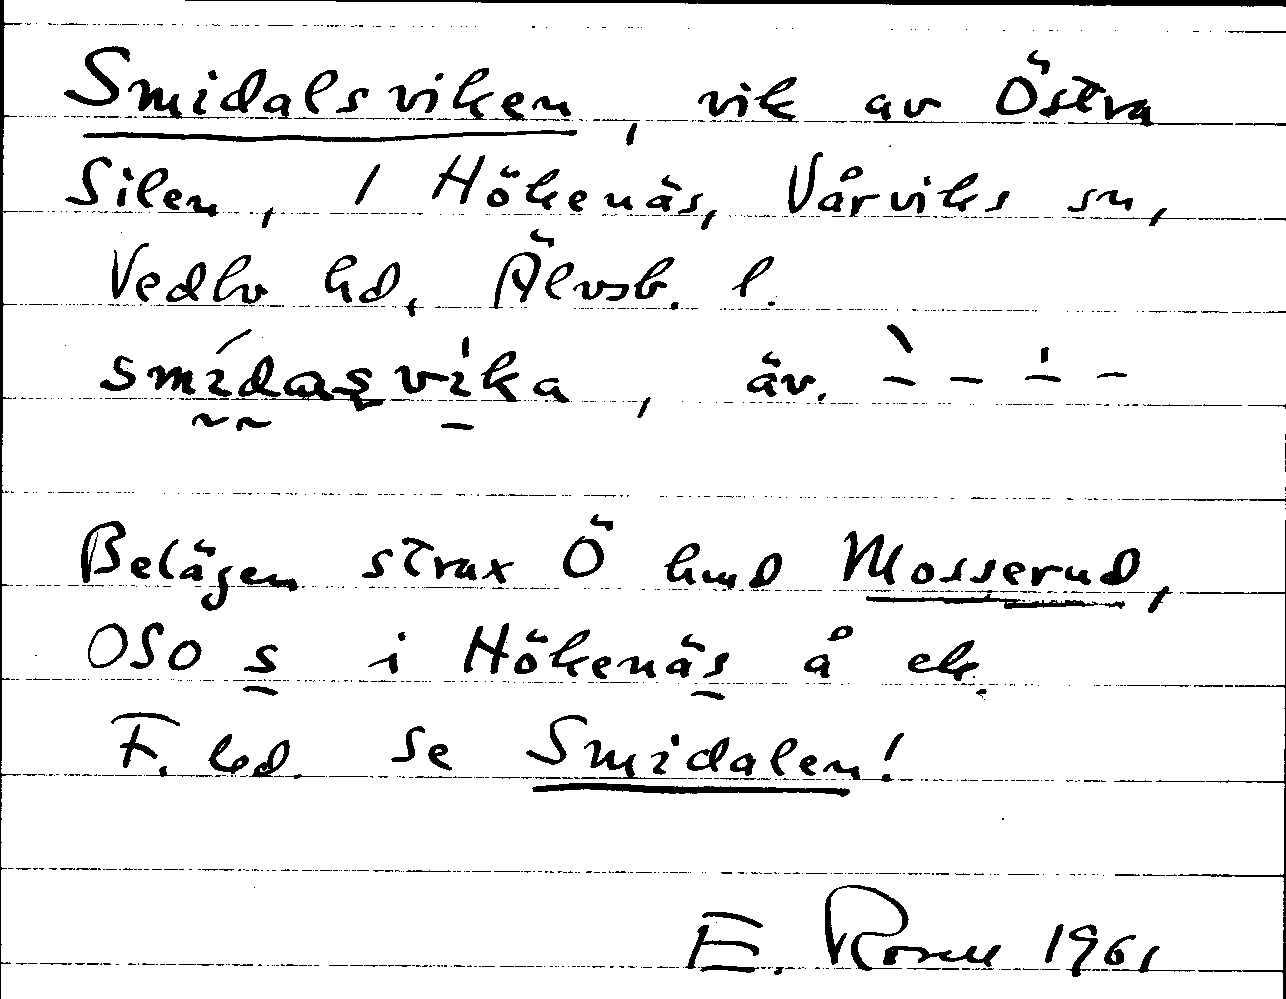 Smidalsviken, vik av Östra
Silen, / Hökenäs, Vårviks sn,
Vedbo hd, Älvsb. l.
smídasvika, äv. ` – – ' – –
Belägen strax Ö hmd Mosserud,
OSO s i Hökenäs å ek.
F. led. se Smidalen!
E. Rosell 1961